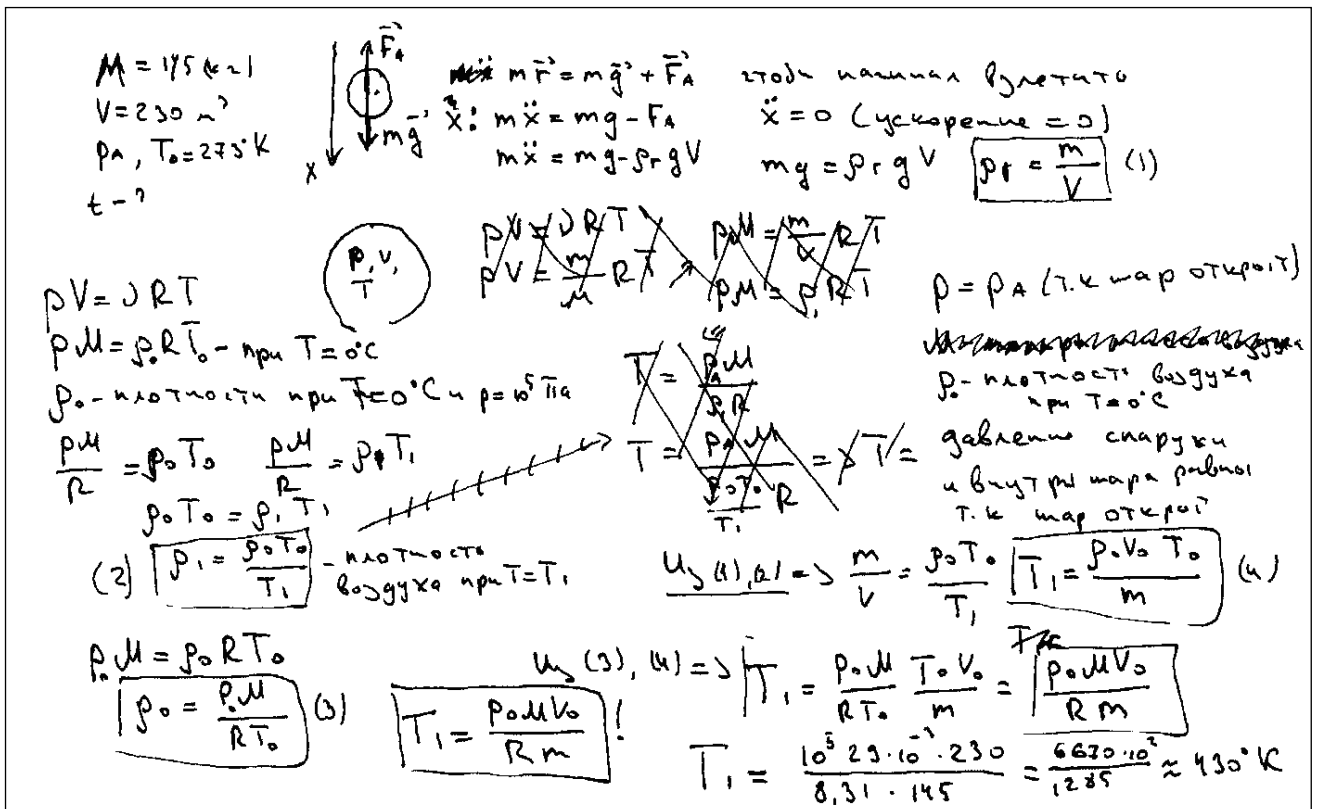 M = 145 (кг)
V = 230 м³
p_A, T₀ = 273°K
t - ?
F_A
mg
x
m r̈ = mg + F_A
ẍ: mẍ = mg - F_A
mẍ = mg - ρ_г g V
чтобы начинал взлетать
ẍ = 0 (ускорение = 0)
mg = ρ_г g V   ρ_г = m/V (1)
p, V, T
pV = νRT
pV = m/M RT
pM = m/V RT
pM = ρ₁RT
pV = νRT
pM = ρ₀RT₀ - при T = 0°C
ρ₀ - плотности при T = 0°C и p = 10⁵ Па
pM/R = ρ₀T₀   pM/R = ρ₁T₁
ρ₀T₀ = ρ₁T₁
(2) ρ₁ = ρ₀T₀/T₁ - плотность
воздуха при T = T₁
T = p_A M/ρ₁R
T = p_A M/(ρ₀T₀/T₁ R) => T =
p = p_A (т.к шар открыт)
ρ₀ - плотность воздуха
при T = 0°C
давление снаружи
и внутри шара равны
т.к шар открыт
Из (1), (2) => m/V = ρ₀T₀/T₁   T₁ = ρ₀V₀T₀/m (4)
p₀M = ρ₀RT₀
ρ₀ = p₀M/RT₀ (3)
T₁ = p₀MV₀/Rm !
Из (3), (4) => T₁ = p₀M/RT₀ T₀V₀/m = p₀MV₀/Rm
T₁ = 10⁵ · 29 · 10⁻³ · 230/8,31 · 145 = 6670 · 10²/1205 ≈ 430°K